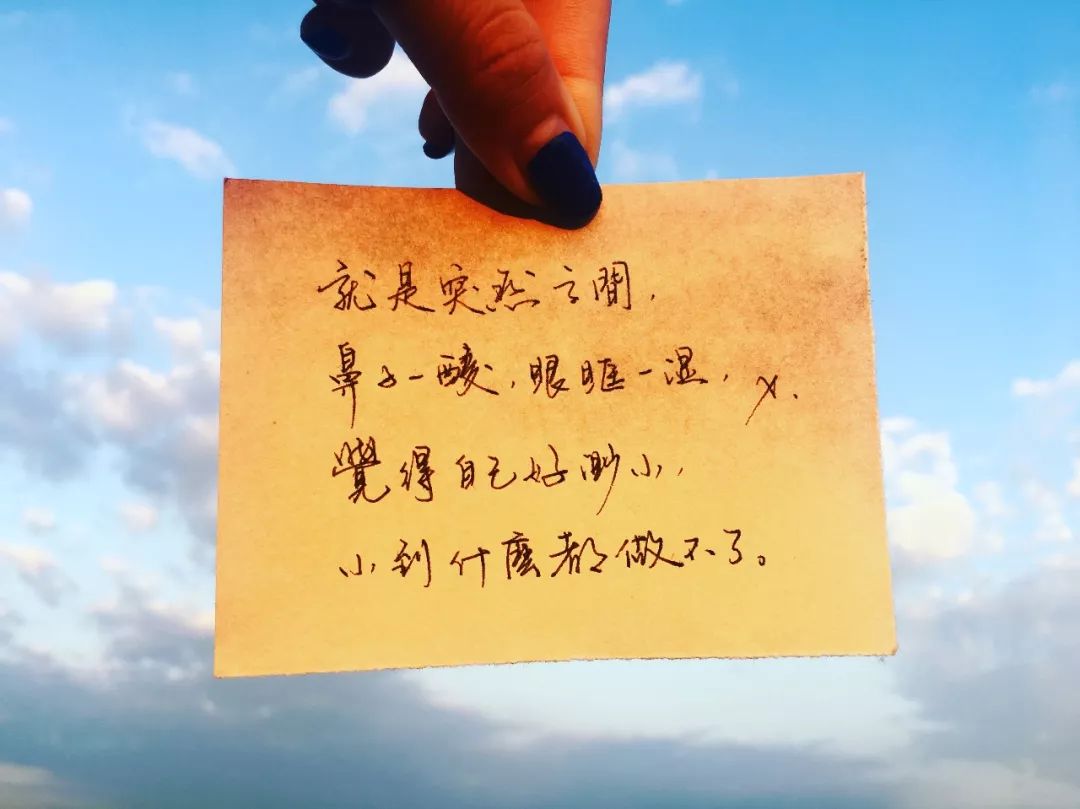 就是突然之間，
鼻子一酸，眼眶一湿，
覺得自己好渺小，
小到什麼都做不了。